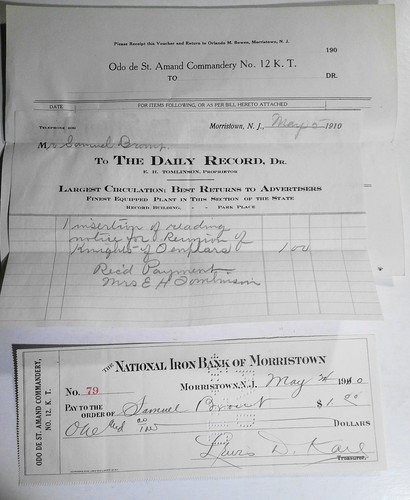 Please Receipt this Voucher and Return to Orlando M. Bowen, Morristown, N. J.
190
Odo de St. Amand Commandery No. 12 K. T.
TO DR.
DATE FOR ITEMS FOLLOWING, OR AS PER BILL HERETO ATTACHED
TELEPHONE
Morristown, N. J., May 5 1910
Mr Samuel
TO THE DAILY RECORD, DR.
E. H. TOMLINSON, PROPRIETOR
LARGEST CIRCULATION; BEST RETURNS TO ADVERTISERS
FINEST EQUIPPED PLANT IN THIS SECTION OF THE STATE
RECORD BUILDING, - - PARK PLACE
1 insertion of reading
notice for Reunion of
Knights of Templars 1 00
Rec'd Payment
Mrs E H Tomlinson
ODO DE ST. AMAND COMMANDERY, NO. 12, K. T.
THE NATIONAL IRON BANK OF MORRISTOWN
No. 79 MORRISTOWN, N.J. May 1910
PAY TO THE ORDER OF Samuel $1.00
One and 00/100 DOLLARS
Lewis D.
Treasurer.